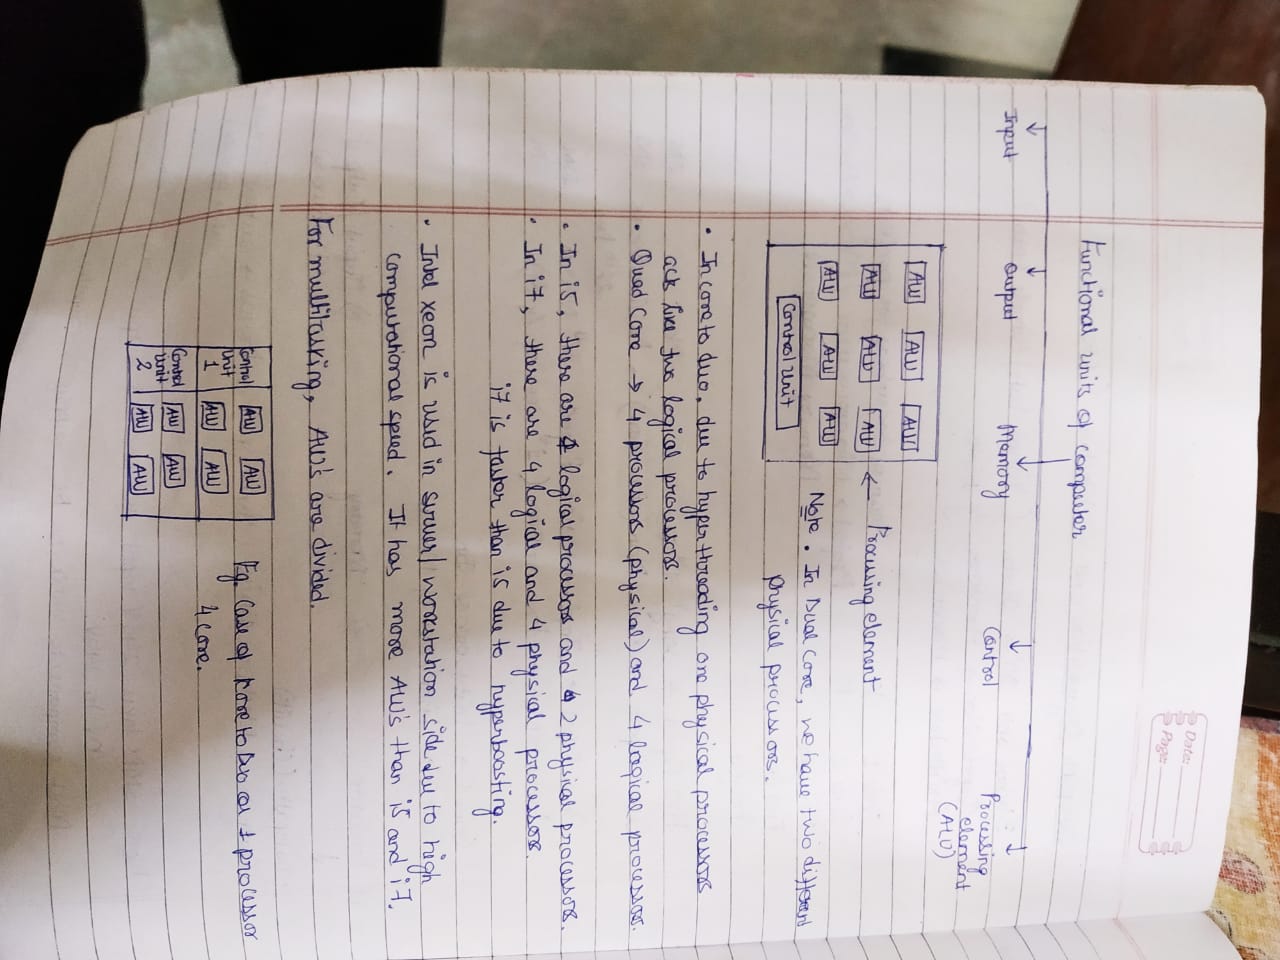 Date:
Page:
Functional units of computer
Input
Output
Memory
Control
Processing
element
(ALU)
ALU ALU ALU
ALU ALU ALU ← Processing element
ALU ALU ALU
Control unit
Note • In Dual core, we have two different
physical processors.
• In core to duo, due to hyperthreading one physical processors
ack like two logical processors.
• Qued Core → 4 processors (physical) and 4 logical processor.
• In i5, there are logical processors and 2 physical processors.
• In i7, there are 4 logical and 4 physical processors.
i7 is faster than i5 due to hyperboosting.
• Intel xeon is used in server/ workstation side due to high
computational speed. It has more ALU's than i5 and i7.
For multitasking, ALU's are divided.
Control
unit
1
ALU ALU
ALU ALU
Control
unit
2
ALU ALU
ALU ALU
Eg. Case of Core to Duo or 1 processor
4 core.